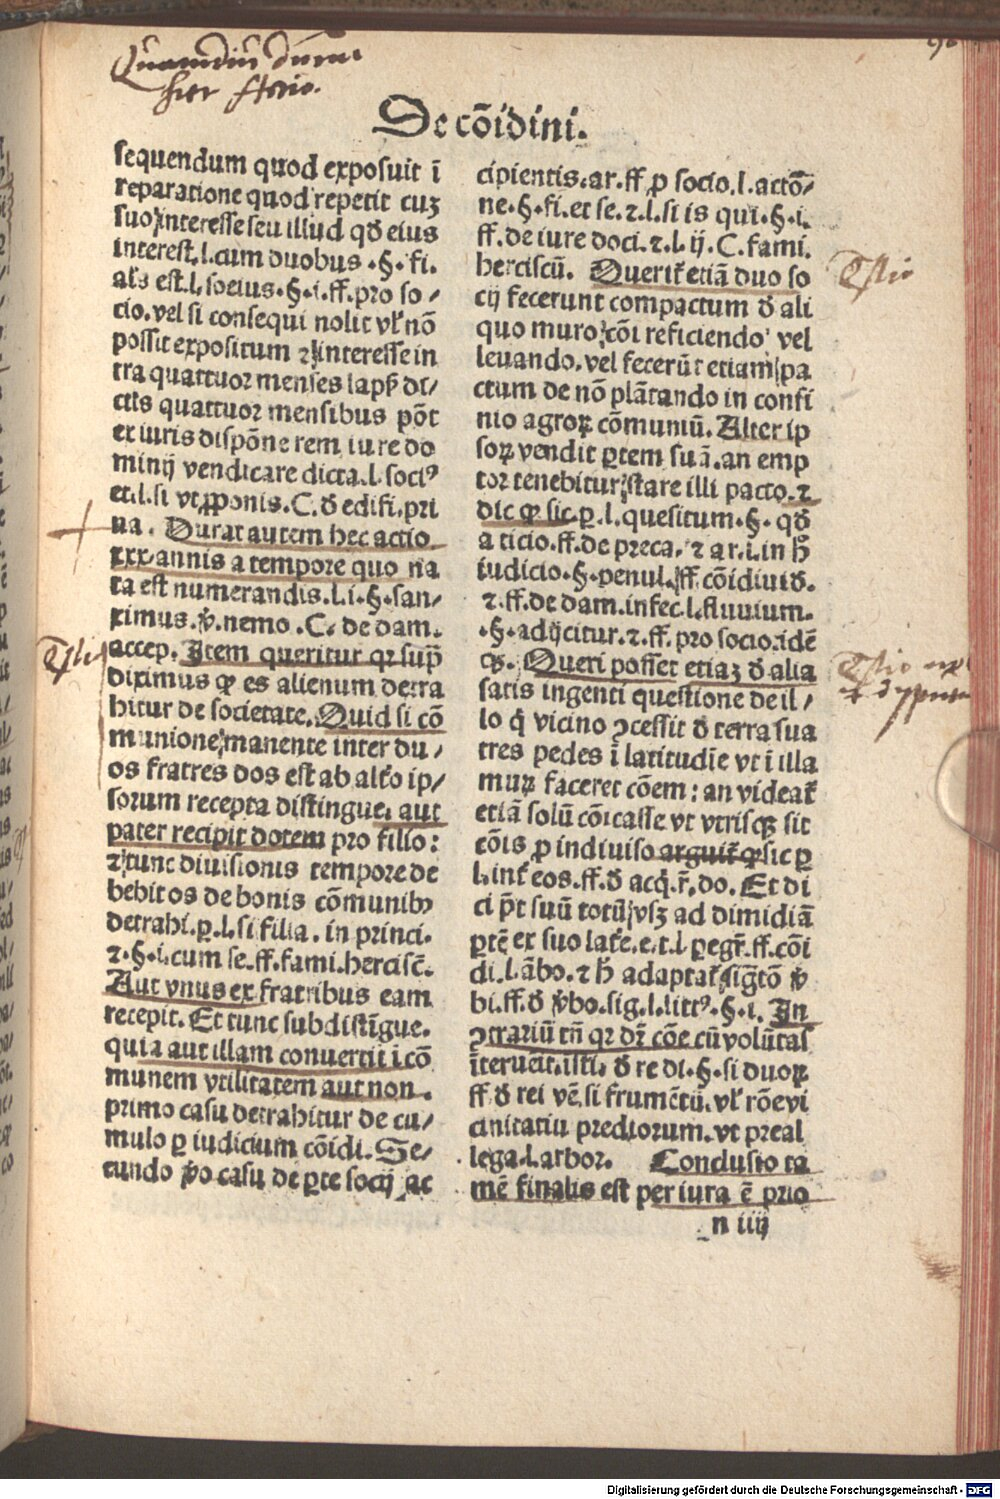 Quamdiu durat
hec actio.
De cōidini.
sequendum quod exposuit ī
reparatione quod repetit cuʒ
suo interesse seu illud qđ eius
interest.l.cum duobus.§.fi.
als est.l.socius.§.i.ff.pro so/
cio.vel si consequi nolit vł nō
possit expositum ⁊ interesse in
tra quattuor menses laps̄ di/
ctis quattuor mensibus pōt
ex iuris dispōne rem iure do
minij vendicare dicta.l.soci⁹
et.l.si vt ꝓponis.C.đ edifi.pri
ua. Durat autem hec actio
xxx.annis a tempore quo na
ta est numerandis.l.i.§.san/
ximus.v̄.nemo.C.de dam.
accep. Item queritur qꝛ sup̄
diximus ꝙ es alienum detra
hitur de societate. Quid si cō
munione manente inter du/
os fratres dos est ab alťo ip/
sorum recepta distingue. aut
pater recipit dotem pro filio:
⁊ tunc diuisionis tempore de
bebit os de bonis cōmunibꝰ
detrahi.ꝑ.l.si filia.in princi.
⁊.§.i.cum se.ff.fami.hercisc̄.
Aut vnus ex fratribus eam
recepit. Et tunc subdistīgue.
quia aut illam conuertit ī cō
munem vtilitatem aut non.
primo casu detrahitur de cu/
mulo ꝑ iudicium cōidi. Se/
cundo v̄o casu de ꝑte socij ac
cipientis.ar.ff.ꝓ socio.l.actō/
ne.§.fi.et se.⁊.l.si is qui.§.i.
ff.de iure doci.⁊.l.ij.C.fami.
herciscū. Querit̄ etiā duo so
cij fecerunt compactum đ ali
quo muro cōi reficiendo vel
leuando.vel fecerūt etiam pa
ctum de nō plātando in confi
nio agroꝝ cōmuniū. Alter ip
soꝝ vendit ꝑtem suā.an emp
tor tenebitur stare illi pacto.⁊
dic ꝙ sic.ꝑ.l.quesitum.§.qđ
a ticio.ff.de preca.⁊ ar.l.in h̄
iudicio.§.penul.ff.cōidiuiđ.
⁊.ff.de dam.infec.l.fluuium.
.§.adijcitur.⁊.ff.pro socio.idē
Queri posset etiaʒ đ alia
satis ingenti questione de il/
lo q̇ vicino ꝯcessit đ terra sua
tres pedes ī latitudīe vt ī illa
muꝝ faceret cōem: an videať
etiā solū cōicasse vt vtrisqꝫ sit
cōis ꝓ indiuiso arguiť ꝙ sic ꝑ
l.inť eos.ff.đ acq̇.ř.do. Et di
ci p̄t suū totū vsqꝫ ad dimidiā
ꝑtē ex suo lať e.e.t.l ꝑegř.ff.cōi
di.l.ābo.⁊ h̄ adaptať sig̃tō v̄
bi.ff.đ v̄bo.sig.l.litt⁹.§.i. In
ꝯtrariū tn̄ qꝛ dꝛ̄ cōe cū volūtas
īteruēit.īsti.đ re di.§.si duoꝝ
ff đ rei vē.si frumētū.vł rōe vi
cinitatiu predioruм.vt preal
lega.l.arbor. Conclusio ta
mē finalis est per iura ē prio
n iiij
Digitalisierung gefördert durch die Deutsche Forschungsgemeinschaft - DFG